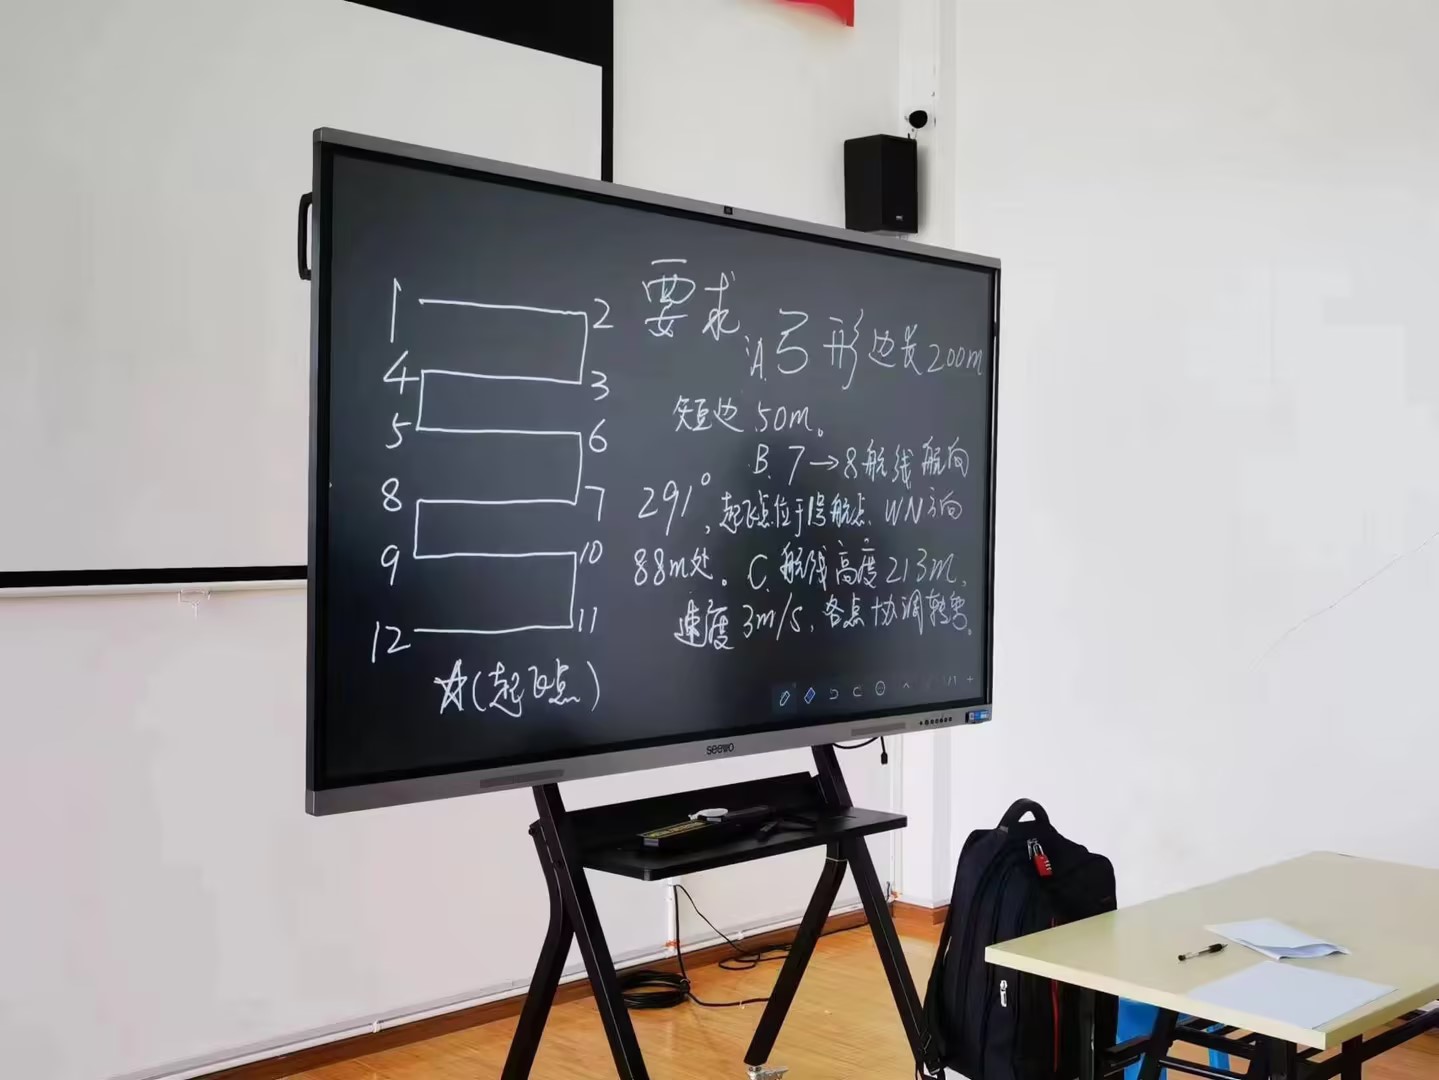 要求
A.弓形边长200m
短边50m。
B.7→8航线航向
291°,起飞点位于1号航点WN方向
88m处。C.航线高度213m,
速度3m/s,各点协调转弯。
1
2
4
3
5
6
8
7
9
10
12
11
☆(起飞点)
seewo